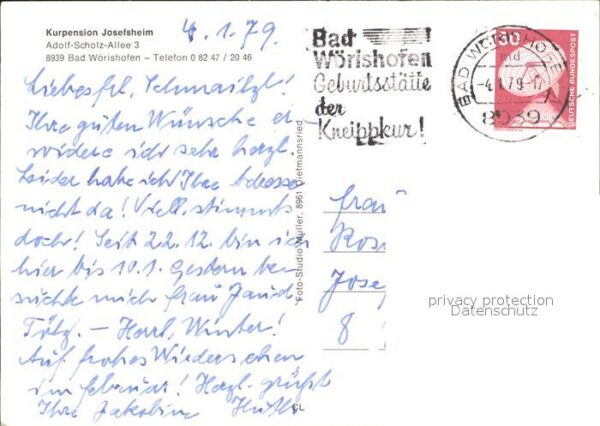 4.1.79.
Kurpension Josefsheim
Adolf-Scholz-Allee 3
8939 Bad Wörishofen – Telefon 0 82 47 / 20 46
Liebes Frl. Schmailzl!
Ihre guten Wünsche er-
widere ich sehr herzl.
Leider habe ich Ihre Adresse
nicht da! Viell. stimmts
doch! Seit 22.12. bin ich
hier bis 10.1. Gestern be-
suchte mich Frau
Tölz. – Herrl. Winter!
Auf frohes Wiedersehen
im Februar! Herzl. grüßt
Ihre Jakobine
Bad
Wörishofen
Geburtsstätte
der
Kneippkur!
BAD WÖRISHOFEN
md
-4.1.79-17
8939
50
DEUTSCHE BUNDESPOST
Foto-Studio Müller, 8961 Dietmannsried
CL
Frau
Ros
Jose
8
privacy protection
Datenschutz